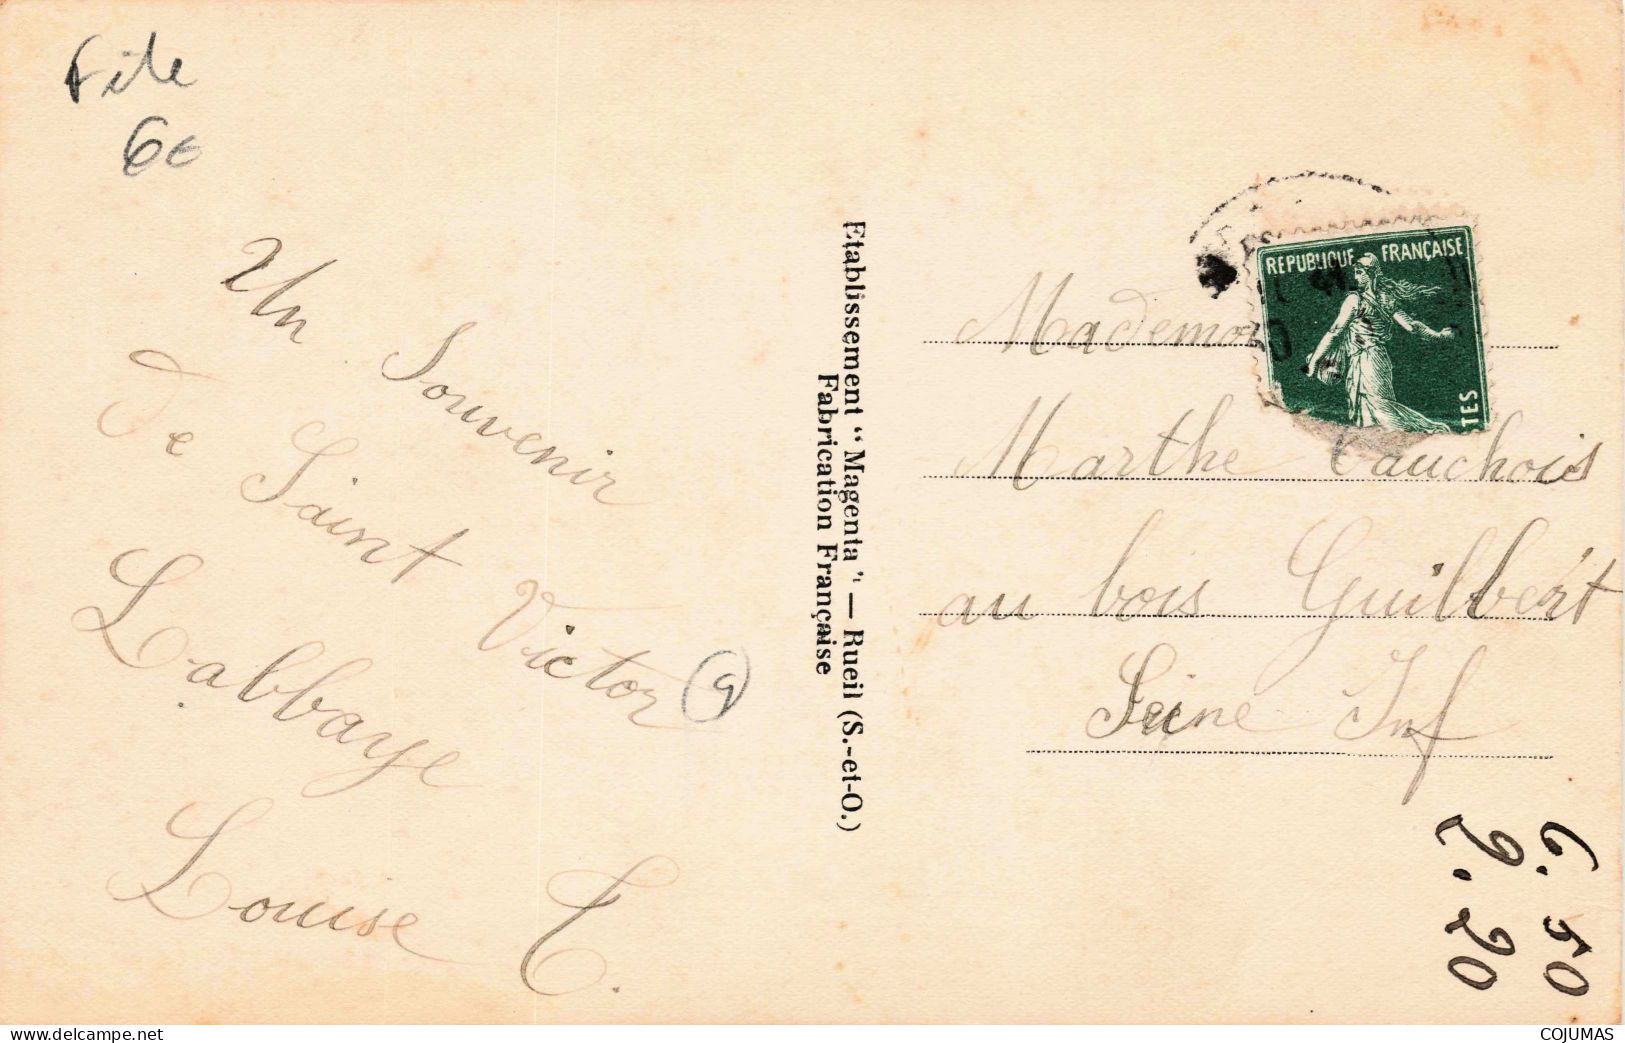 Fête
6€
Un Souvenir
de Saint Victor
Labbaye
Louise C.
9
Etablissement "Magenta" — Rueil (S.-et-O.)
Fabrication Française
REPUBLIQUE FRANÇAISE
TES
Mademo
Marthe Cauchois
au bois Guilbert
Seine Inf
6.50
2.20
delcampe.net
COJUMAS